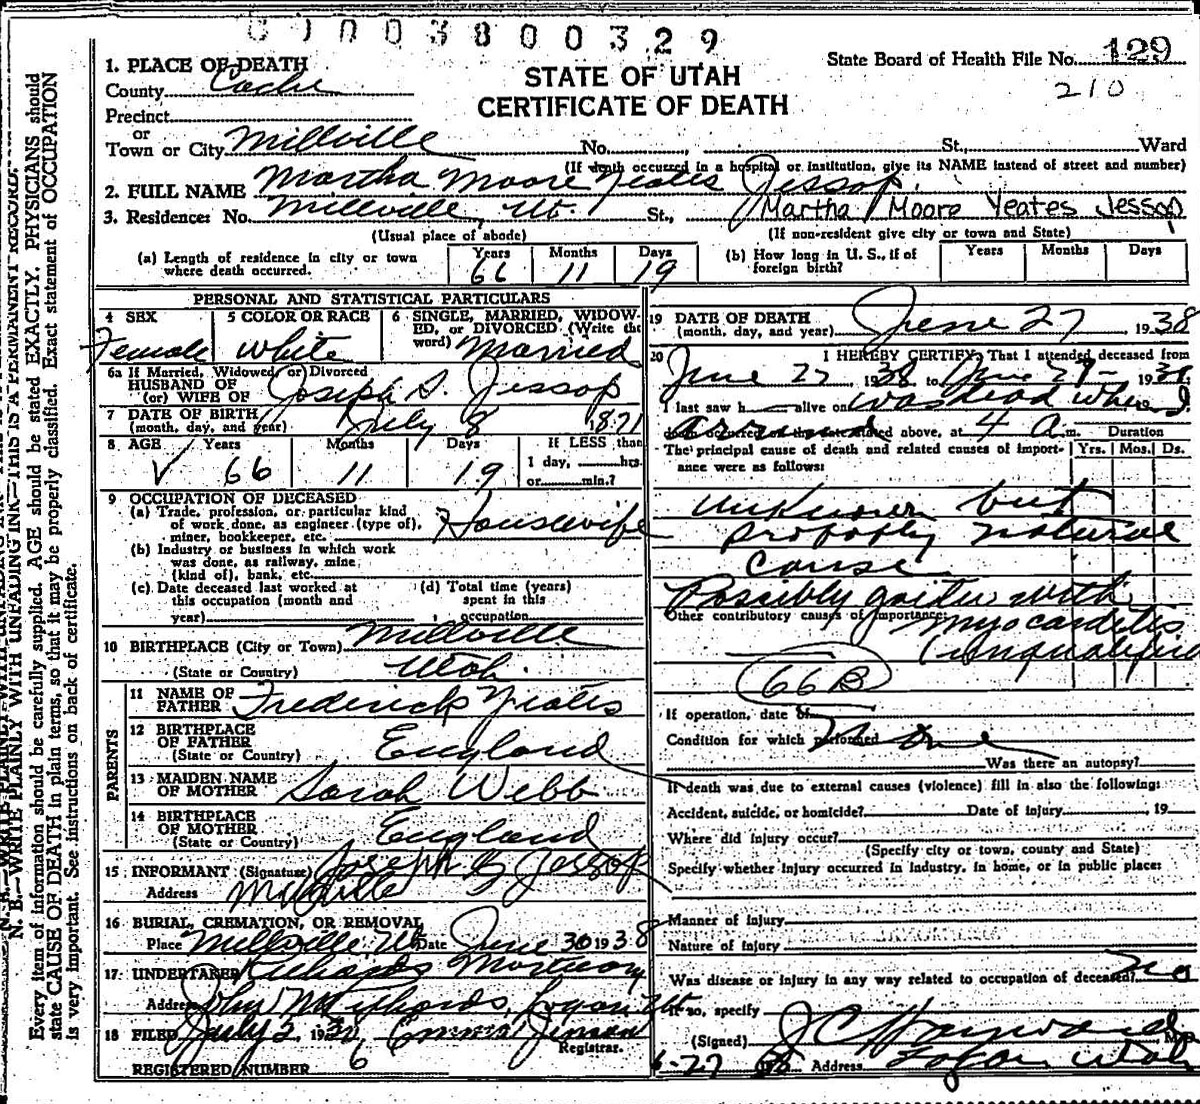 0 1 0 0 3 8 0 0 3 2 9
State Board of Health File No. 129
210
STATE OF UTAH
CERTIFICATE OF DEATH
1. PLACE OF DEATH
County Cache
Precinct
or
Town or City Millville No. St., Ward
(If death occurred in a hospital or institution, give its NAME instead of street and number)
2. FULL NAME Martha Moore Yeates Jessop.
3. Residence: No. Millville, Ut. St., Martha Moore Yeates Jessop
(Usual place of abode) (If non-resident give city or town and State)
(a) Length of residence in city or town where death occurred. Years 66 Months 11 Days 19
(b) How long in U. S., if of foreign birth? Years Months Days
PERSONAL AND STATISTICAL PARTICULARS
4 SEX Female
5 COLOR OR RACE White
6 SINGLE, MARRIED, WIDOWED, or DIVORCED (Write the word) Married
6a If Married, Widowed, or Divorced
HUSBAND OF
(or) WIFE OF Joseph S. Jessop
7 DATE OF BIRTH
(month, day, and year) July 8 1871
8 AGE Years 66 Months 11 Days 19 If LESS than
1 day, hrs.
or min.?
9 OCCUPATION OF DECEASED
(a) Trade, profession, or particular kind
of work done, as engineer (type of),
miner, bookkeeper, etc. Housewife
(b) Industry or business in which work
was done, as railway, mine
(kind of), bank, etc.
(c) Date deceased last worked at
this occupation (month and
year)
(d) Total time (years)
spent in this
occupation
10 BIRTHPLACE (City or Town) Millville
(State or Country) Utah.
PARENTS
11 NAME OF
FATHER Frederick Yeates
12 BIRTHPLACE
OF FATHER England
(State or Country)
13 MAIDEN NAME
OF MOTHER Sarah Webb
14 BIRTHPLACE
OF MOTHER England
(State or Country)
15 INFORMANT (Signature) Joseph S Jessop
Address Millville
16 BURIAL, CREMATION, OR REMOVAL
Place Millville, Ut Date June 30 1938
17 UNDERTAKER Richards Mortuary
Address John Richards, Logan Ut
18 FILED July 2 19 Emma Jenson
Registrar.
REGISTERED NUMBER 6
19 DATE OF DEATH
(month, day, and year) June 27 1938
20 I HEREBY CERTIFY, That I attended deceased from
June 27, 1938 to June 27- 1938
I last saw h alive on was dead when I
arrived
death occurred on the date stated above, at 4 a m. Duration
The principal cause of death and related causes of importance were as follows: Yrs. Mos. Ds.
unknown but
probably natural
cause
Possibly goiter with
Other contributory causes of importance: myocarditis
(unqualified
66B
If operation, date of
Condition for which performed None
Was there an autopsy?
If death was due to external causes (violence) fill in also the following:
Accident, suicide, or homicide? Date of injury 19
Where did injury occur?
(Specify city or town, county and State)
Specify whether injury occurred in industry, in home, or in public place:
Manner of injury
Nature of injury
Was disease or injury in any way related to occupation of deceased? no
If so, specify
(Signed) J C Hayward M.D.
6-27 38 Address Logan Utah
N. B.—WRITE PLAINLY WITH UNFADING INK—THIS IS A PERMANENT RECORD.
Every item of information should be carefully supplied. AGE should be stated EXACTLY. PHYSICIANS should
state CAUSE OF DEATH in plain terms, so that it may be properly classified. Exact statement of OCCUPATION
is very important. See instructions on back of certificate.